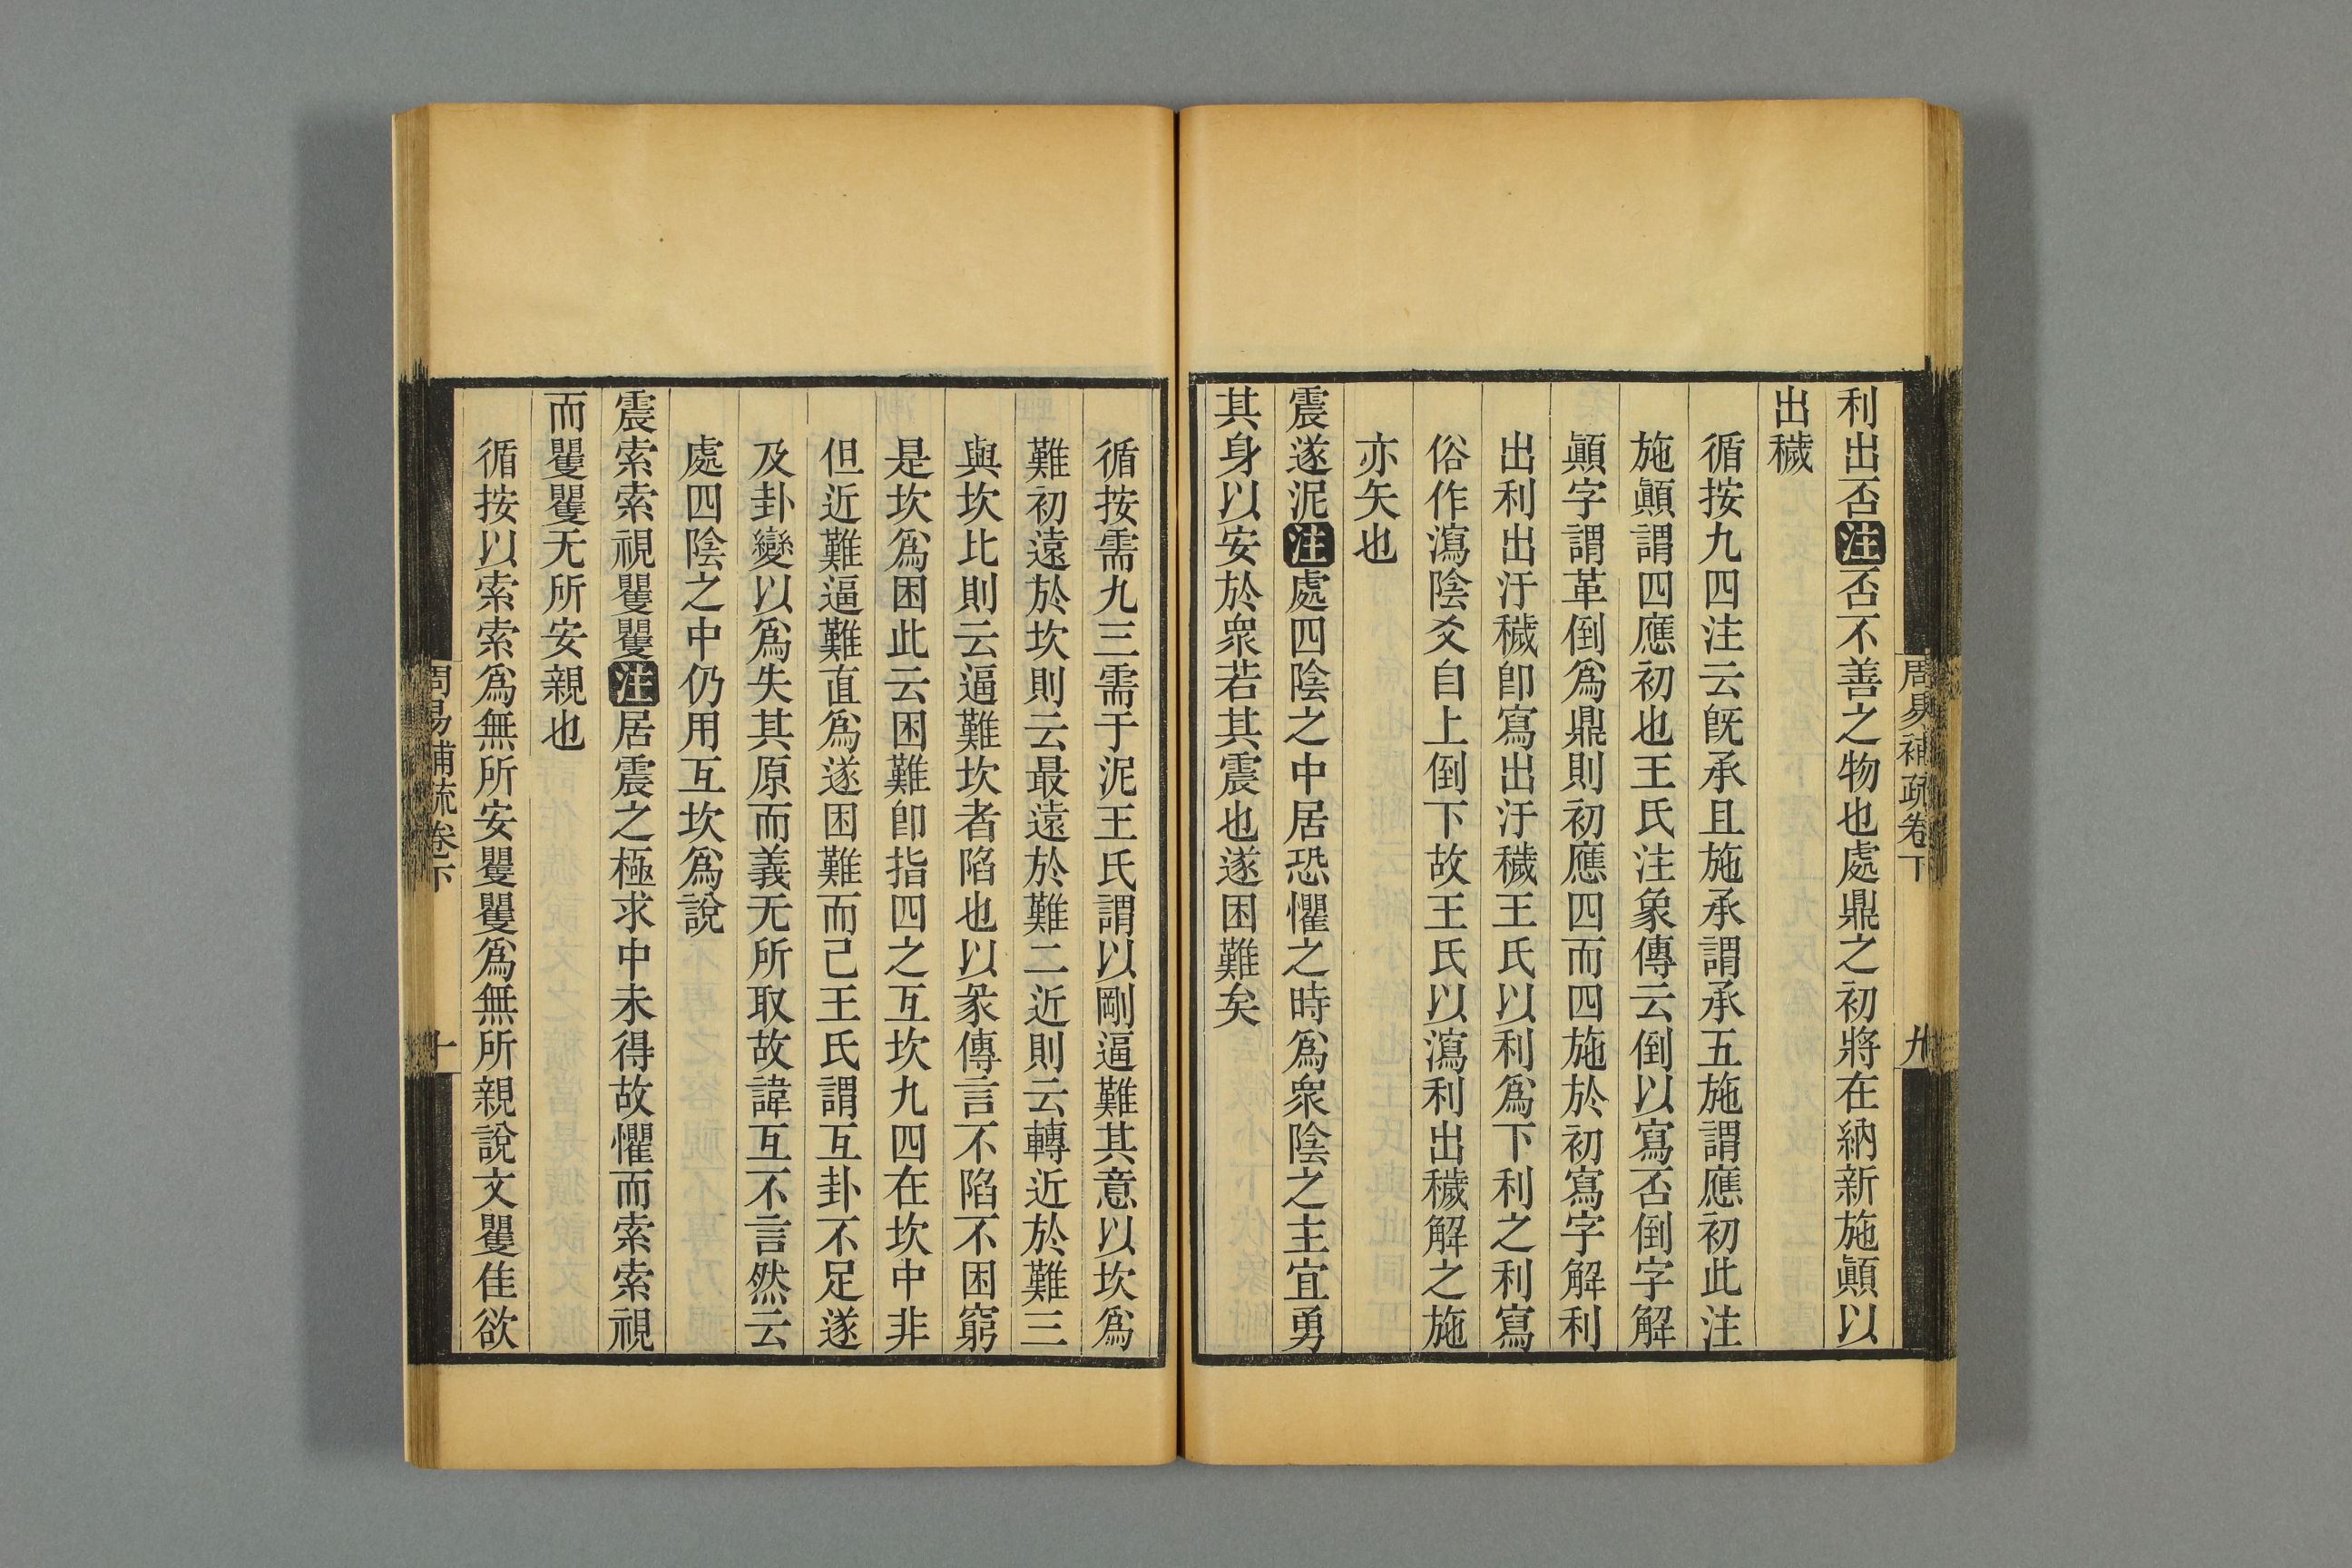 周易補疏卷下
九
利出否注否不善之物也處鼎之初將在納新施顚以
出穢
循按九四注云旣承且施承謂承五施謂應初此注
施顚謂四應初也王氏注象傳云倒以寫否倒字解
顚字謂革倒爲鼎則初應四而四施於初寫字解利
出利出汙穢卽寫出汙穢王氏以利爲下利之利寫
俗作瀉陰爻自上倒下故王氏以瀉利出穢解之施
亦矢也
震遂泥注處四陰之中居恐懼之時爲衆陰之主宜勇
其身以安於衆若其震也遂困難矣
循按需九三需于泥王氏謂以剛逼難其意以坎爲
難初遠於坎則云最遠於難二近則云轉近於難三
與坎比則云逼難坎者陷也以彖傳言不陷不困窮
是坎爲困此云困難卽指四之互坎九四在坎中非
但近難逼難直爲遂困難而己王氏謂互卦不足遂
及卦變以爲失其原而義无所取故諱互不言然云
處四陰之中仍用互坎爲說
震索索視矍矍注居震之極求中未得故懼而索索視
而矍矍无所安親也
循按以索索爲無所安矍矍爲無所親說文矍隹欲
周易補疏卷下
十